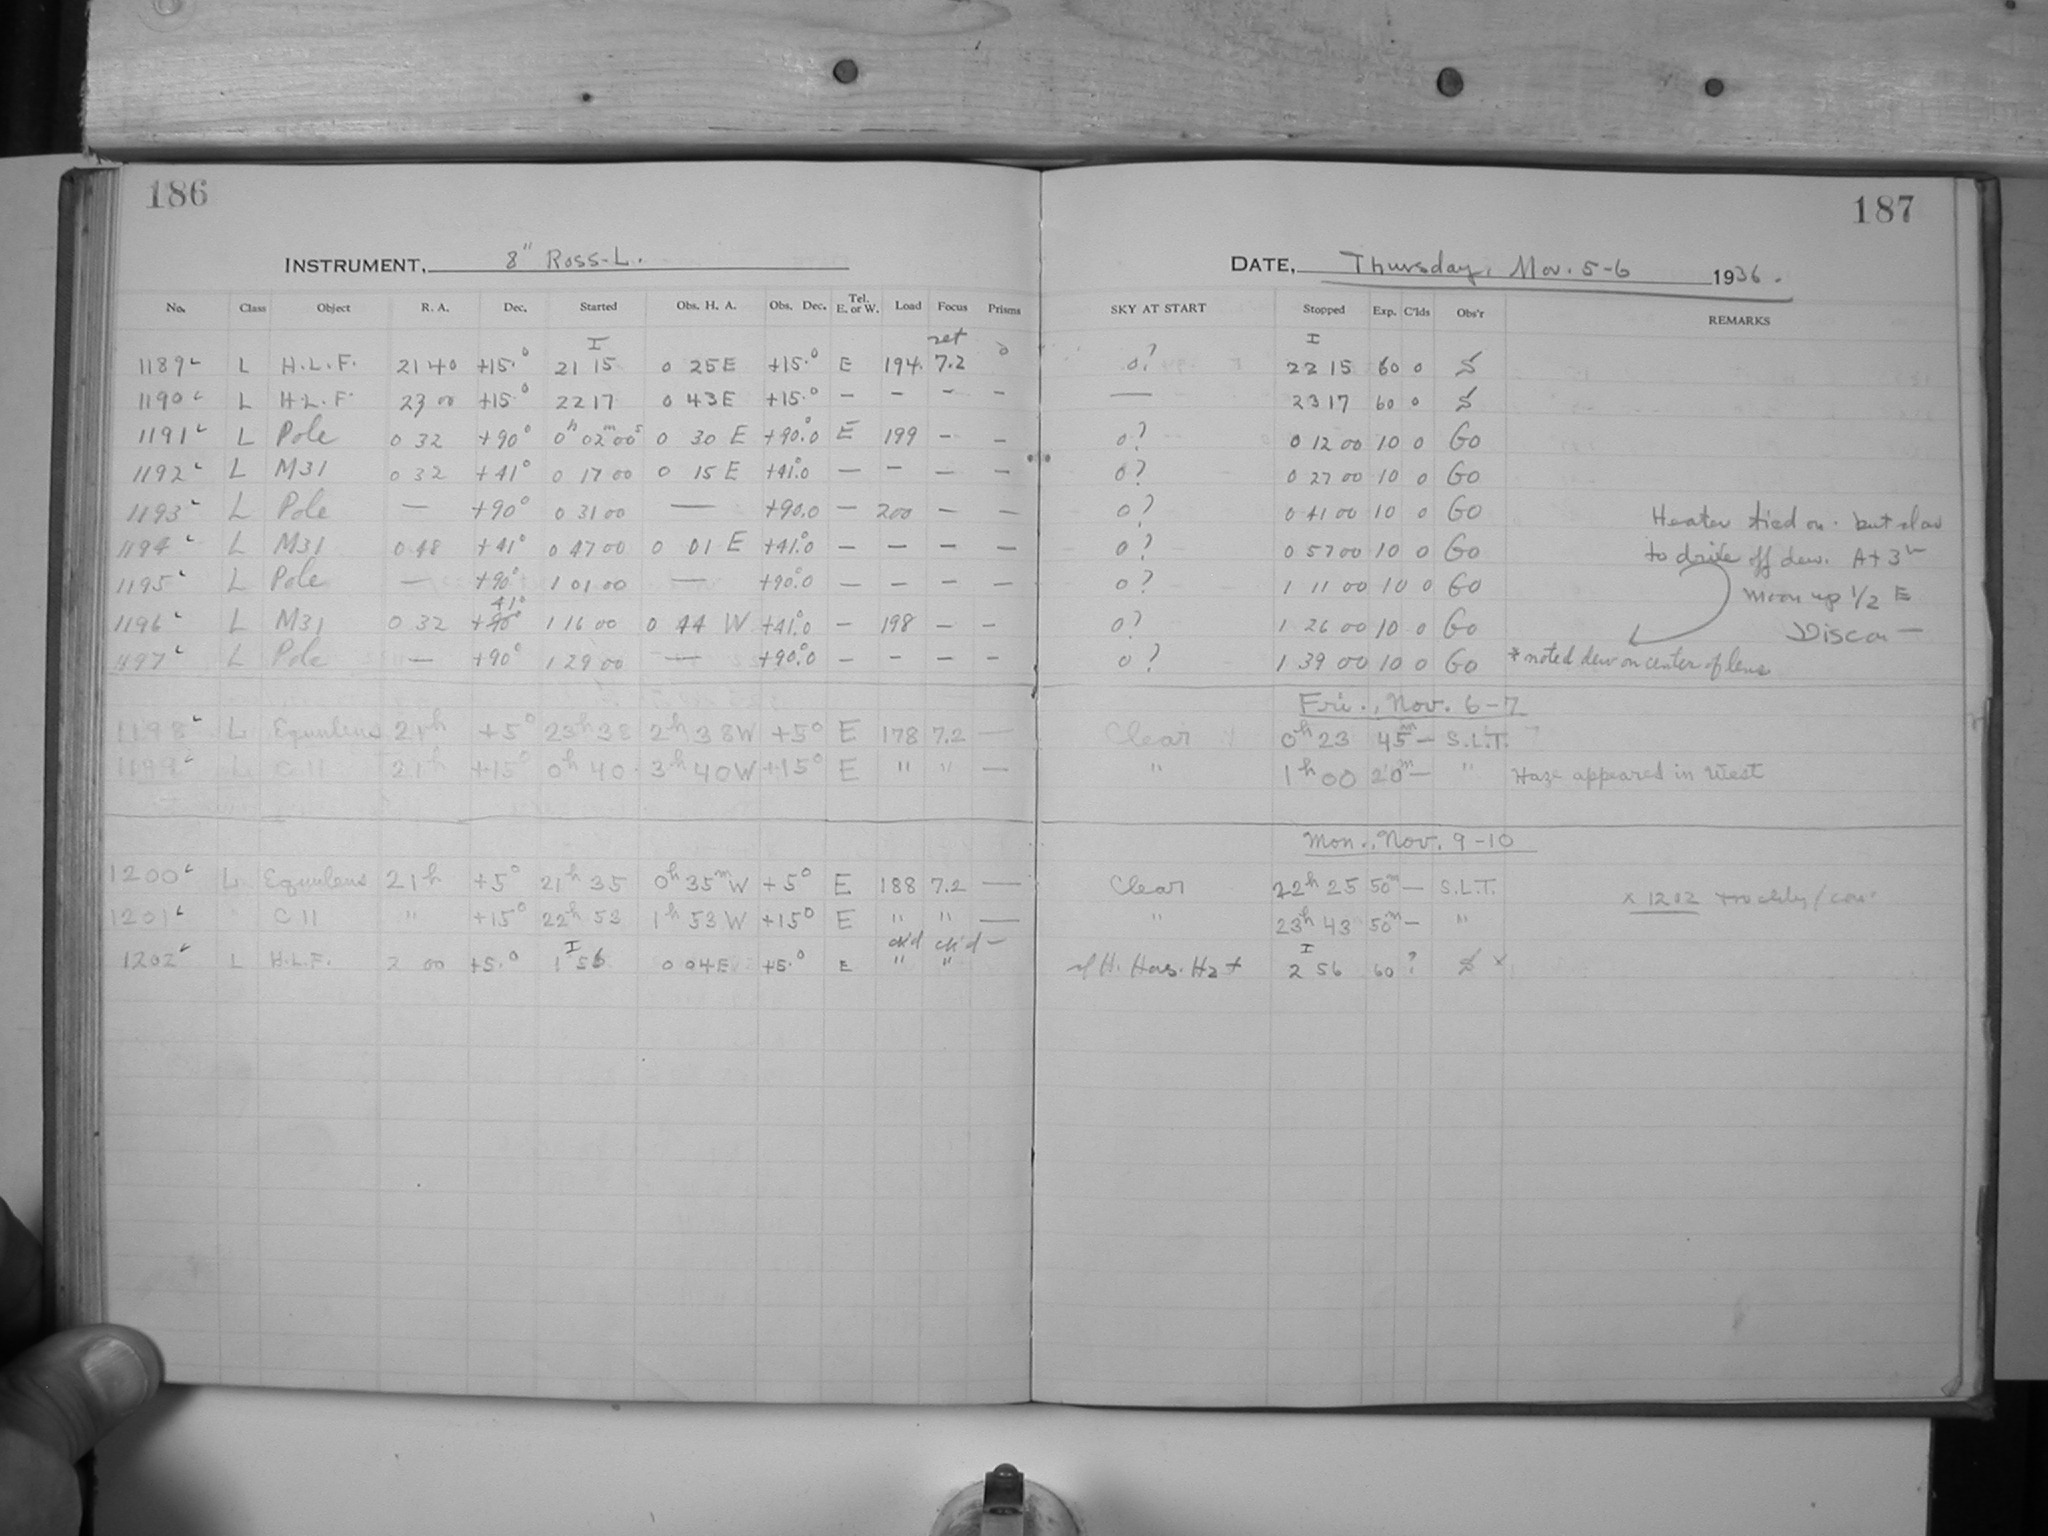 186
187
INSTRUMENT, 8" Ross-L.
DATE, Thursday, Nov. 5-6 1936.
No. Class Object R. A. Dec. Started Obs. H. A. Obs. Dec. Tel. E. or W. Load Focus Prisms SKY AT START Stopped Exp. C'lds Obs'r REMARKS
I set I
1189L L H.L.F. 21 40 +15.° 21 15 0 25E +15.° E 194. 7.2 0 0? 22 15 60 0 S
1190L L H.L.F. 23 00 +15° 22 17 0 43E +15.° – – – – — 23 17 60 0 S
1191L L Pole 0 32 +90° 0h 02m 00s 0 30 E +90.°0 E 199 – – 0? 0 12 00 10 0 Go
1192L L M31 0 32 +41° 0 17 00 0 15 E +41.°0 – – – – 0? 0 27 00 10 0 Go
1193L L Pole — +90° 0 31 00 — +90.0 – 200 – – 0? 0 41 00 10 0 Go Heater tied on. but slow
1194L L M31 0 48 +41° 0 47 00 0 01 E +41.°0 – – – – 0? 0 57 00 10 0 Go to drive off dew. At 3h
1195L L Pole — +90° 1 01 00 — +90.°0 – – – – 0? 1 11 00 10 0 Go moon up 1/2 E
41°
1196L L M31 0 32 +90° 1 16 00 0 44 W +41.°0 – 198 – – 0? 1 26 00 10 0 Go
1197L L Pole — +90° 1 29 00 — +90.°0 – – – – 0? 1 39 00 10 0 Go *noted dew on center of lens
Fri., Nov. 6-7
1198L L Equuleus 21h +5° 23h 38 2h 38W +5° E 178 7.2 — Clear 0h 23 45m – S.L.T.
1199L L C 11 21h +15° 0h 40 3h 40W +15° E " " — " 1h 00 20m – " Haze appeared in West
Mon., Nov. 9-10
1200L L Equuleus 21h +5° 21h 35 0h 35m W +5° E 188 7.2 — Clear 22h 25 50m – S.L.T.
1201L " C 11 " +15° 22h 53 1h 53 W +15° E " " — " 23h 43 50m – "
x 1202
I ck'd ck'd – I
1202L L H.L.F. 2 00 +5.° 1 56 0 04E +5.° E " " 2 56 60 ? S x